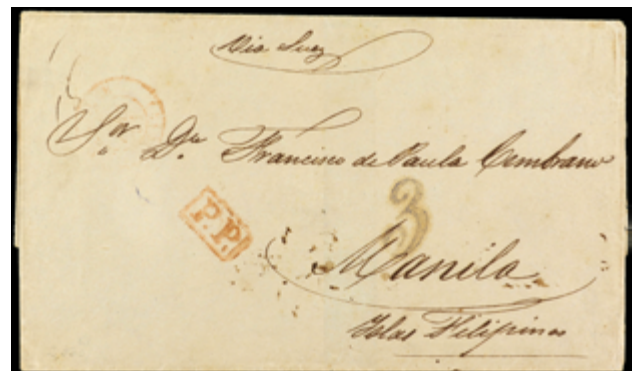 Via Suez
Sor. Dn. Francisco de Paula Cembrano
P.P.
3
Manila
Islas Filipinas